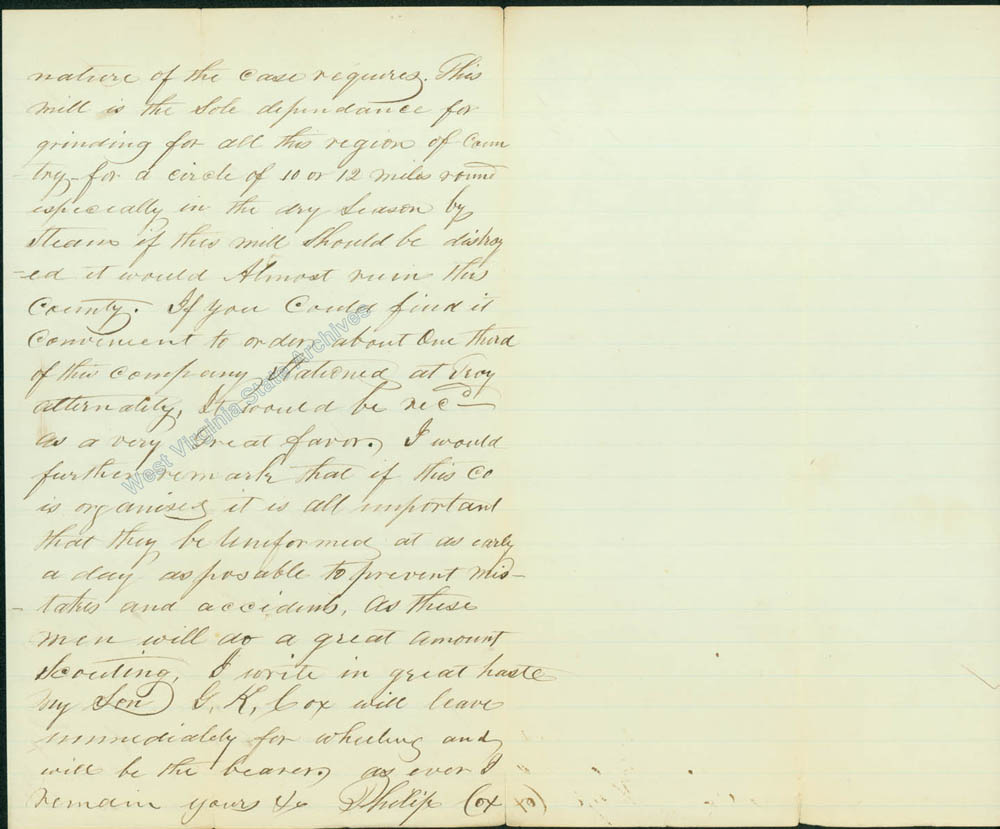 nature of the case requires. This
mill is the Sole dependance for
grinding for all this region of Coun
try - for a circle of 10 or 12 miles round
especially in the dry Season by
Steam if this mill Should be distroy
-ed it would Almost ruin this
County. If you Could find it
Convenient to order about One third
of this company Stationed at Troy
alternately, It would be recd
as a very Great favor. I would
further remark that if this Co
is organised it is all important
that they be Uniformed at as early
a day as posable to prevent mis-
- takes and accidents, As these
men will do a great Amount
Scouting, I write in great haste
my Son G. K. Cox will leave
immediately for wheeling and
will be the bearer, as ever I
remain yours &c Philip Cox
West Virginia State Archives